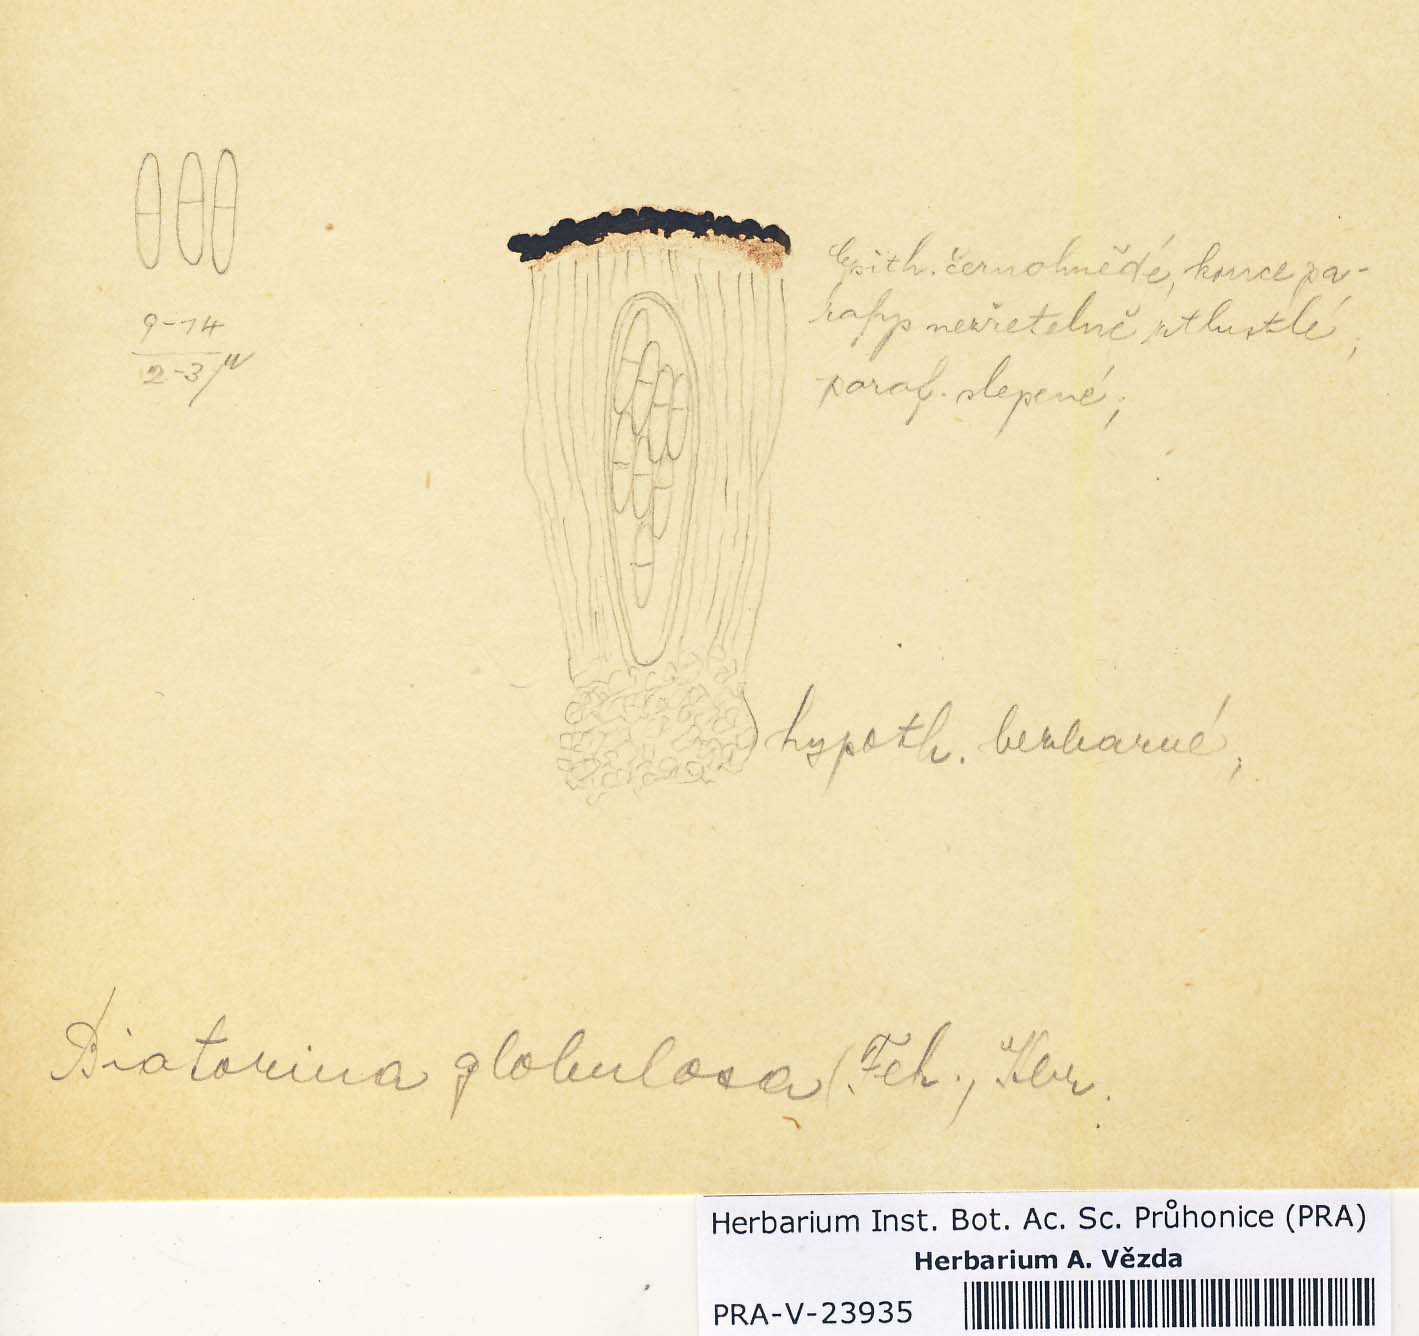 9-14
2-3 µ
Epith. černohnědé, konce pa-
rafyp nezřetelně ztlustlé,
paraf. slepené;
hypoth. bezbarvé,
Biatorina globulosa (Flk.) Kbr.
Herbarium Inst. Bot. Ac. Sc. Průhonice (PRA)
Herbarium A. Vězda
PRA-V-23935